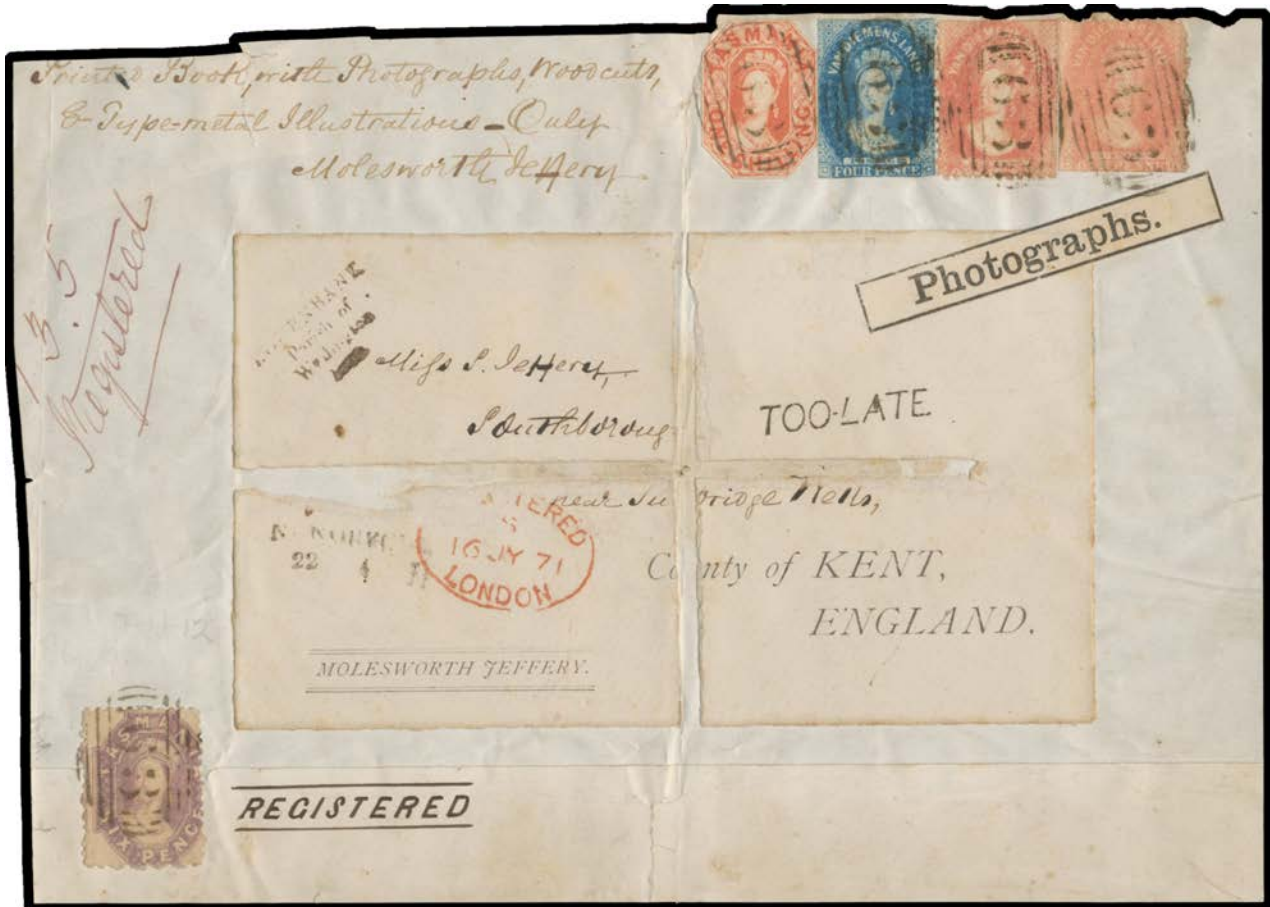 Printed Book, with Photographs, Woodcuts,
& Type-metal Illustrations - Only
Molesworth Jeffery
TASMANIA
VAN DIEMENS LAND
FOUR PENCE
Photographs.
Registered
Parish of
Miss S. Jeffery,
Southboroug
TOO-LATE
near Tu bridge Wells,
TERED
16 JY 71
LONDON
22 4
County of KENT,
ENGLAND.
MOLESWORTH JEFFERY.
SIX PENCE
REGISTERED